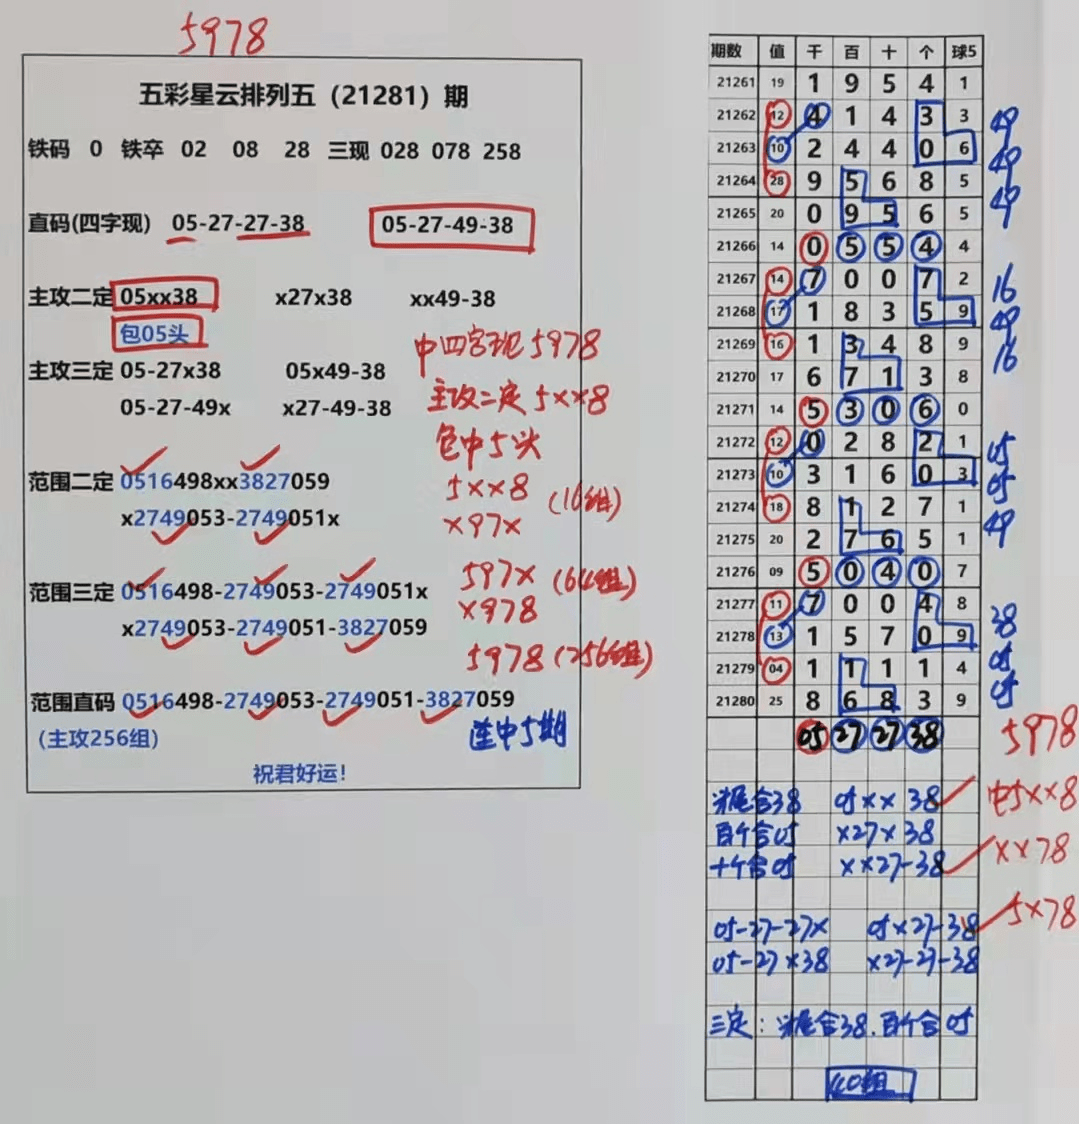 5978
五彩星云排列五（21281）期
铁码 0 铁卒 02 08 28 三现 028 078 258
直码(四字现) 05-27-27-38 05-27-49-38
主攻二定 05xx38 x27x38 xx49-38
包05头
中四字现5978
主攻三定 05-27x38 05x49-38
主攻二定5××8
05-27-49x x27-49-38
包中5头
范围二定 0516498xx3827059
5××8 (16组)
x2749053-2749051x
×97×
范围三定 0516498-2749053-2749051x
597× (64组)
×978
x2749053-2749051-3827059
5978 (256组)
范围直码 0516498-2749053-2749051-3827059
(主攻256组)
连中5期
祝君好运！
期数 值 千 百 十 个 球5
21261 19 1 9 5 4 1
21262 12 4 1 4 3 3 49
21263 10 2 4 4 0 6 49
21264 28 9 5 6 8 5 49
21265 20 0 9 5 6 5
21266 14 0 5 5 4 4
21267 14 7 0 0 7 2 16
21268 17 1 8 3 5 9 49
21269 16 1 3 4 8 9 16
21270 17 6 7 1 3 8
21271 14 5 3 0 6 0
21272 12 0 2 8 2 1 05
21273 10 3 1 6 0 3 05
21274 18 8 1 2 7 1 49
21275 20 2 7 6 5 1
21276 09 5 0 4 0 7
21277 11 7 0 0 4 8 38
21278 13 1 5 7 0 9 05
21279 04 1 1 1 1 4 05
21280 25 8 6 8 3 9
05 27 27 38 5978
头尾合38 05×× 38 中5××8
百个合05 ×27×38
十个合05 ××27-38 ××78
05-27-27× 05×27-38 5×78
05-27×38 ×27-27-38
三定：头尾合38.百个合05
40组